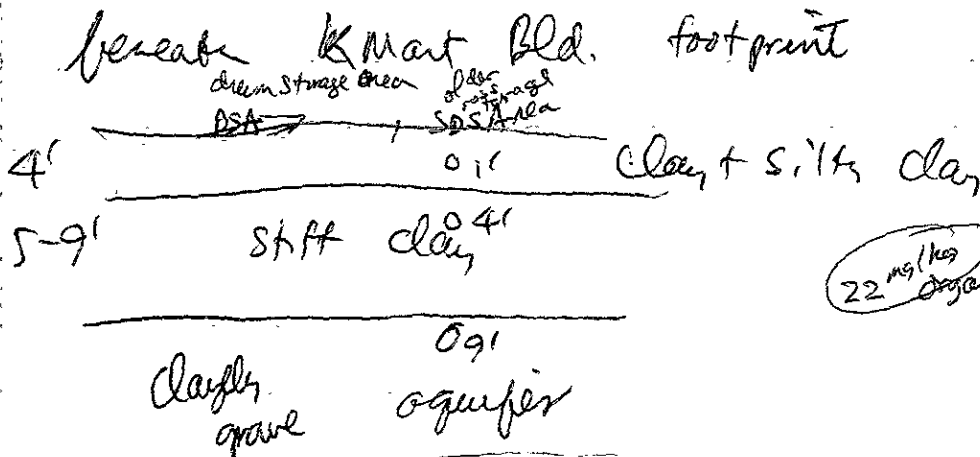 beneath KMart Bld. footprint
drum storage area
DSA SDSArea
4' 0 1' Clay + silty clay
5-9' stiff clay 0 4'
22 mg/kg
0 9'
clayey aquifer
grave